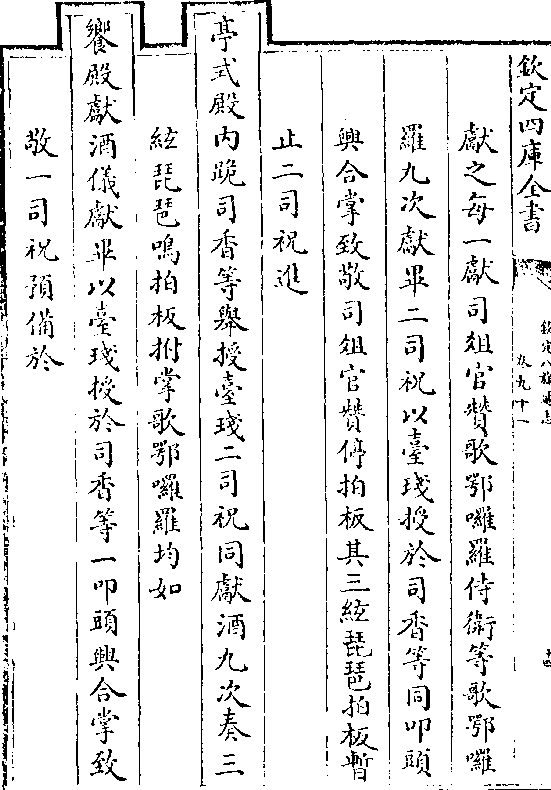 欽定四庫全書
欽定八旗通志
卷九十一
獻之每一獻司俎官贊歌鄂囉羅侍衛等歌鄂囉
羅九次獻畢二司祝以臺琖授於司香等同叩頭
興合掌致敬司俎官贊停拍板其三絃琵琶拍板暫
止二司祝進
亭式殿内跪司香等舉授臺琖二司祝同獻酒九次奏三
絃琵琶鳴拍板拊掌歌鄂囉羅均如
饗殿獻酒儀獻畢以臺琖授於司香等一叩頭興合掌致
敬一司祝預備於